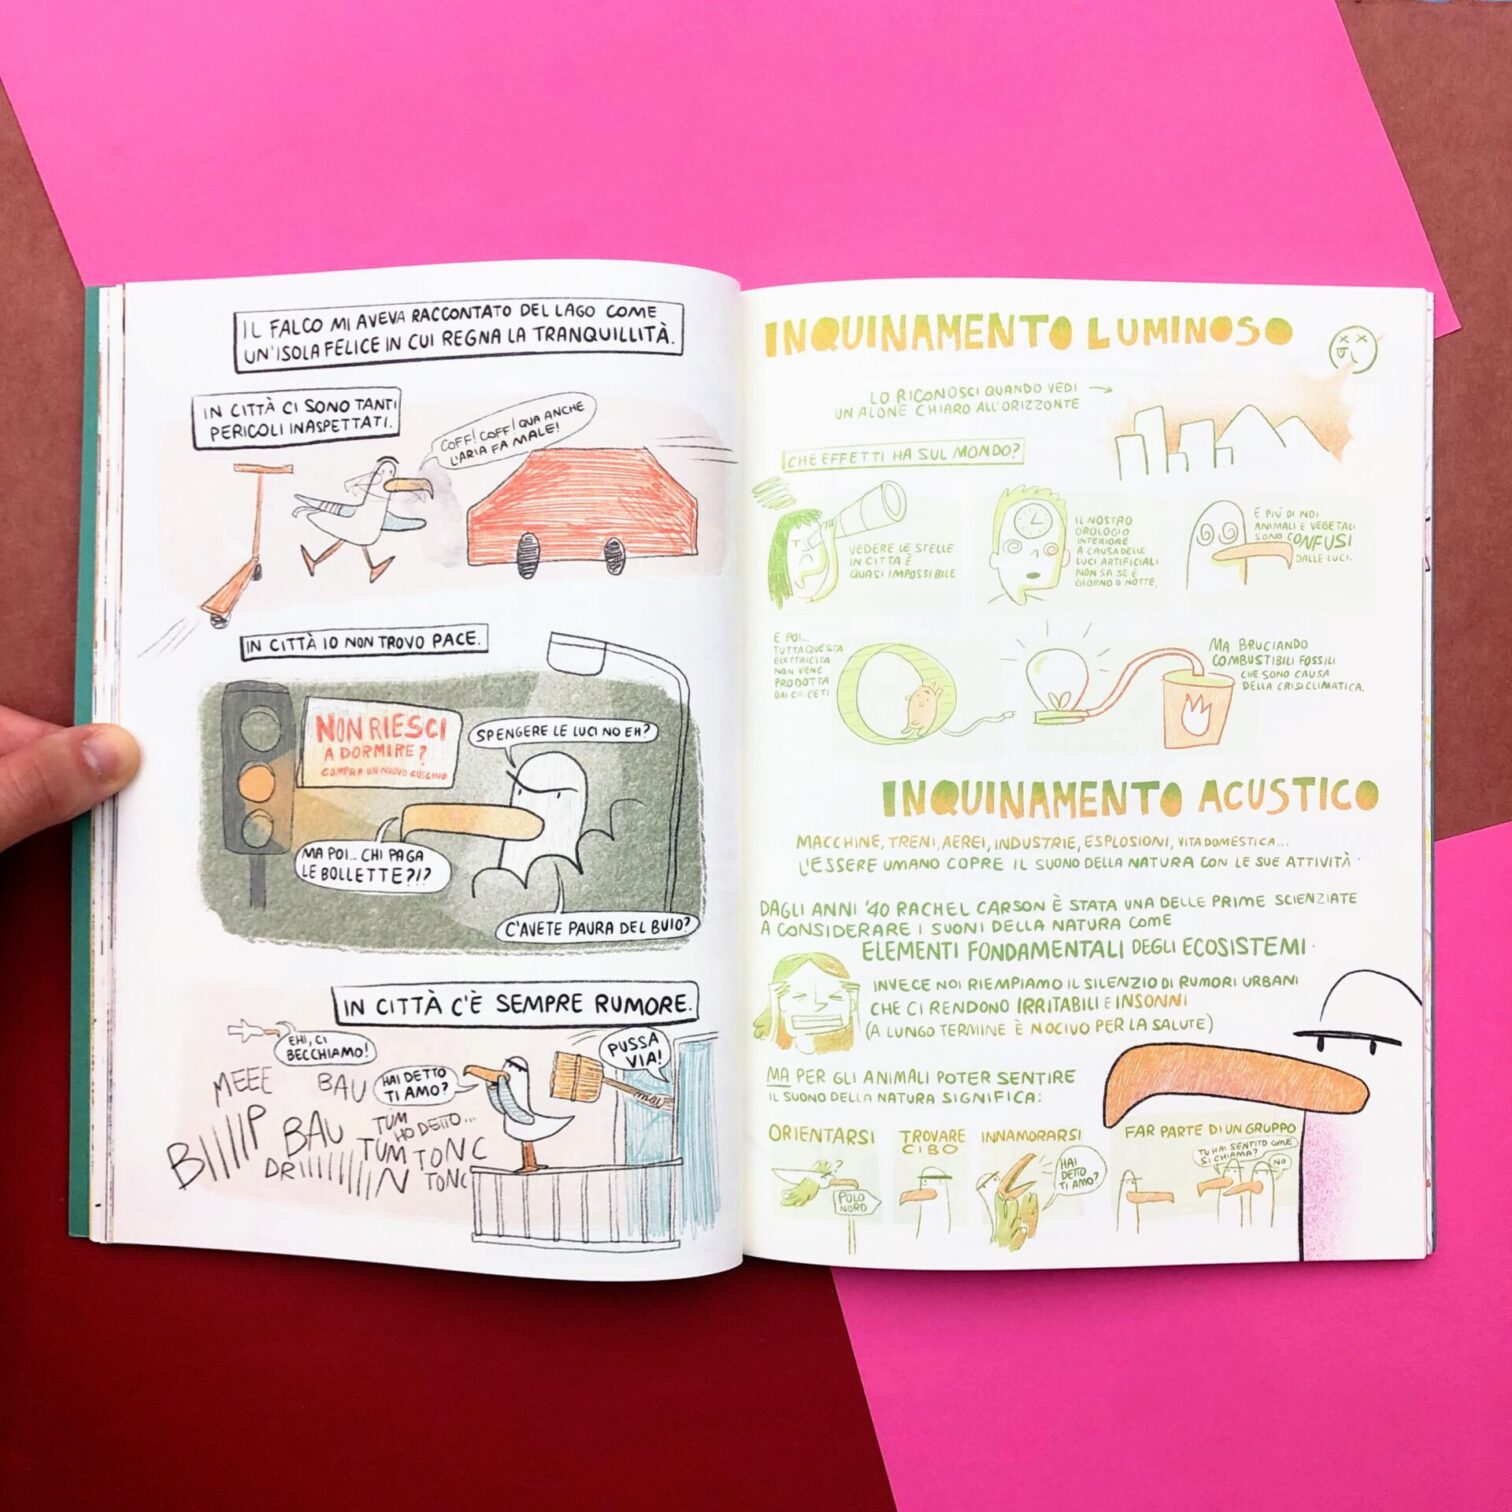 IL FALCO MI AVEVA RACCONTATO DEL LAGO COME
UN'ISOLA FELICE IN CUI REGNA LA TRANQUILLITÀ.
IN CITTÀ CI SONO TANTI
PERICOLI INASPETTATI.
COFF! COFF! QUA ANCHE
L'ARIA FA MALE!
IN CITTÀ IO NON TROVO PACE.
NON RIESCI
A DORMIRE?
COMPRA UN NUOVO CUSCINO
SPENGERE LE LUCI NO EH?
MA POI... CHI PAGA
LE BOLLETTE?!?
C'AVETE PAURA DEL BUIO?
IN CITTÀ C'È SEMPRE RUMORE.
EHI, CI
BECCHIAMO!
PUSSA
VIA!
MEEE
BAU
HAI DETTO
TI AMO?
BIIIIIP
BAU
TUM
HO DETTO...
TUM TONC
DRIIIIIIIIIN
TONC
INQUINAMENTO LUMINOSO
LO RICONOSCI QUANDO VEDI
UN ALONE CHIARO ALL'ORIZZONTE
CHE EFFETTI HA SUL MONDO?
VEDERE LE STELLE
IN CITTÀ È
QUASI IMPOSSIBILE
IL NOSTRO
OROLOGIO
INTERIORE
A CAUSA DELLE
LUCI ARTIFICIALI
NON SA SE È
GIORNO O NOTTE.
E PIÙ DI NOI
ANIMALI E VEGETALI
SONO CONFUSI
DALLE LUCI.
E POI...
TUTTA QUESTA
ELETTRICITÀ
NON VIENE
PRODOTTA
DAI CRICETI
MA BRUCIANDO
COMBUSTIBILI FOSSILI
CHE SONO CAUSA
DELLA CRISI CLIMATICA.
INQUINAMENTO ACUSTICO
MACCHINE, TRENI, AEREI, INDUSTRIE, ESPLOSIONI, VITA DOMESTICA...
L'ESSERE UMANO COPRE IL SUONO DELLA NATURA CON LE SUE ATTIVITÀ.
DAGLI ANNI '40 RACHEL CARSON È STATA UNA DELLE PRIME SCIENZIATE
A CONSIDERARE I SUONI DELLA NATURA COME
ELEMENTI FONDAMENTALI DEGLI ECOSISTEMI.
INVECE NOI RIEMPIAMO IL SILENZIO DI RUMORI URBANI
CHE CI RENDONO IRRITABILI E INSONNI
(A LUNGO TERMINE È NOCIVO PER LA SALUTE)
MA PER GLI ANIMALI POTER SENTIRE
IL SUONO DELLA NATURA SIGNIFICA:
ORIENTARSI
?
POLO
NORD
TROVARE
CIBO
INNAMORARSI
HAI
DETTO
TI AMO?
FAR PARTE DI UN GRUPPO
TU HAI SENTITO COME
SI CHIAMA?
NO